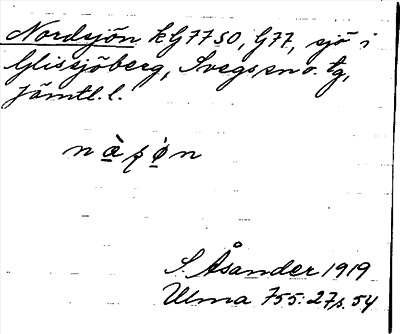 Nordsjön kG7750, G77, sjö i
Glissjöberg, Svegs sn o. tg,
Jämtl. l.
S. Åsander 1919
Ulma 755:27 s. 54